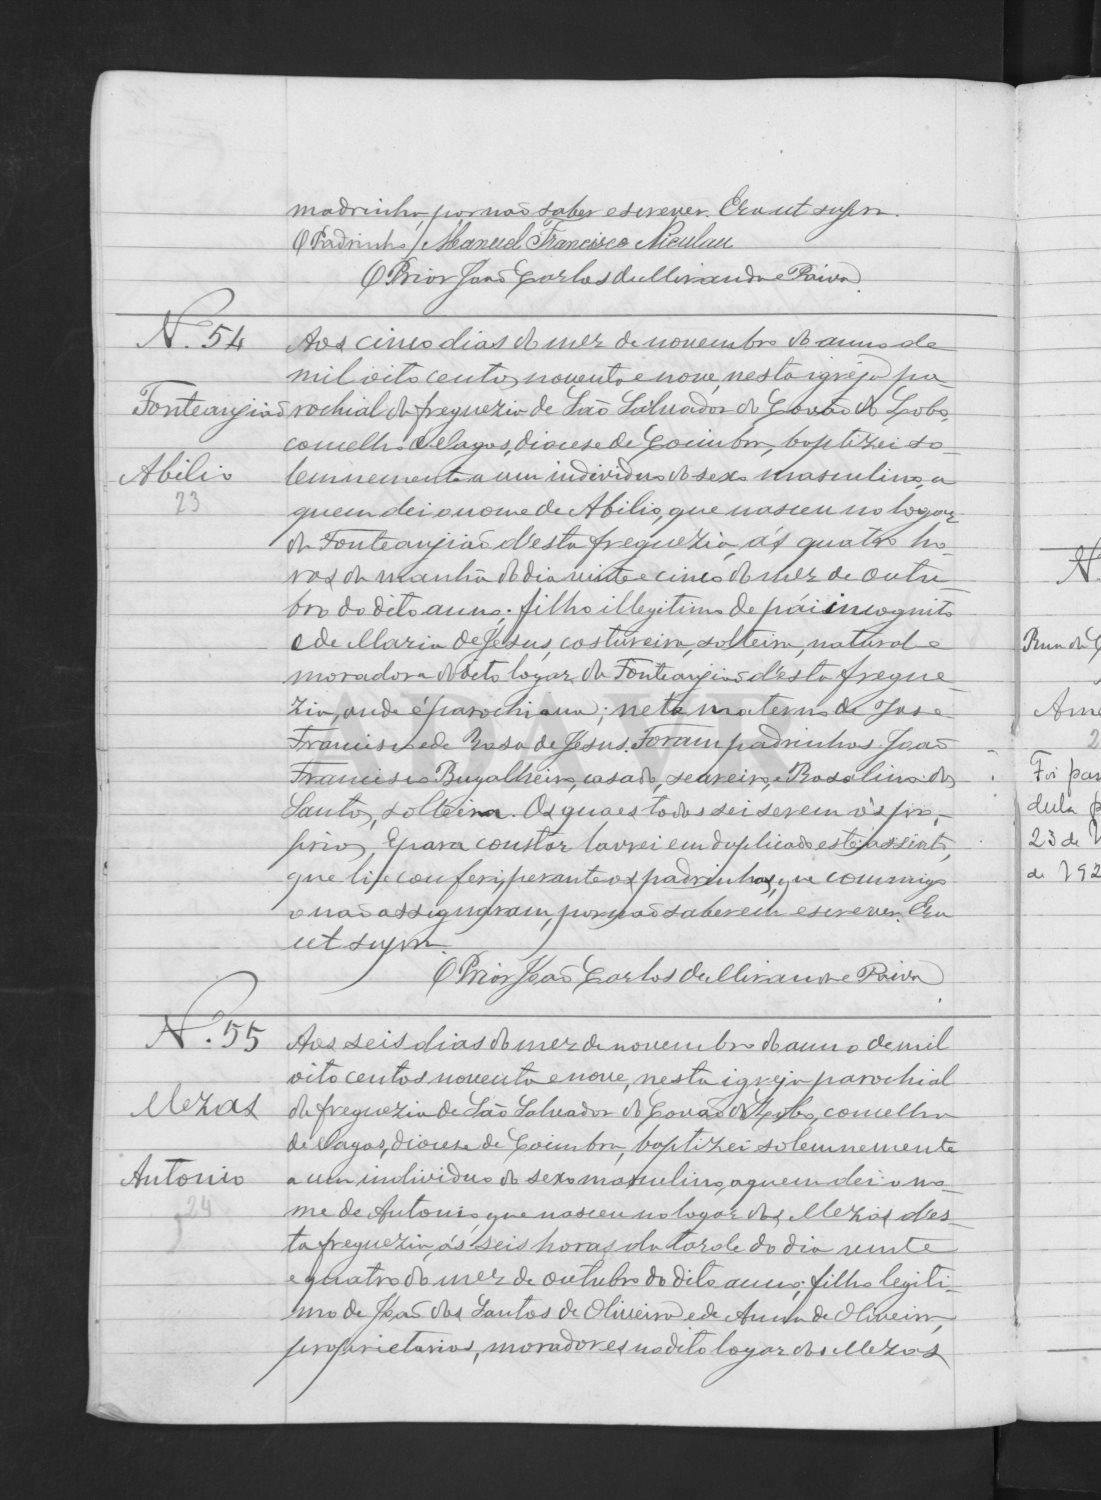 madrinha, por não saber escrever. Era ut supra.
O Padrinho / Manuel Francisco Niculau
O Prior João Carlos de Miranda e Paiva.
N.º 54
Fonteanjião
Abilio
23
Aos cinco dias do mez de novembro do anno de
mil oito centos noventa e nove, nesta igreja pa-
rochial da freguezia de São Salvador do Covão do Lobo,
concelho de Vagos, diocese de Coimbra, baptizei so-
lemnemente a um individuo do sexo masculino, a
quem dei o nome de Abilio, que nasceu no logar
da Fonteanjião d'esta freguezia, ás quatro ho-
ras da manhã do dia vinte e cinco do mez de outu-
bro do dito anno; filho illegitimo de pái incognito
e de Maria de Jesus, costureira, solteira, natural e
moradora no dito logar da Fonteanjião d'esta fregue-
zia, onde é parochiana; neto materno de José
Francisco e de Rosa de Jesus. Foram padrinhos João
Francisco Bugalheiro, casado, seareiro, e Rosalina dos
Santos, solteira. Os quaes todos sei serem os pro-
prios. E para constar lavrei em duplicado este assento,
que li e conferi perante os padrinhos, que commigo
o não assignaram, por não saberem escrever. Era
ut supra.
O Prior João Carlos de Miranda e Paiva
N.º 55
Mezas
Antonio
24
Aos seis dias do mez de novembro do anno de mil
oito centos noventa e nove, nesta igreja parochial
da freguezia de São Salvador do Covão do Lobo, concelho
de Vagos, diocese de Coimbra, baptizei solemnemente
a um individuo do sexo masculino, a quem dei o no-
me de Antonio, que nasceu no logar das Mezas d'es-
ta freguezia, ás seis horas da tarde do dia vinte
e quatro do mez de outubro do dito anno; filho legiti-
mo de João dos Santos de Oliveira e de Anna de Oliveira,
proprietarios, moradores no dito logar das Mezas
N.
Rua da
Ame
2
Foi pas
dula p
23 de
de 192
ADAVR